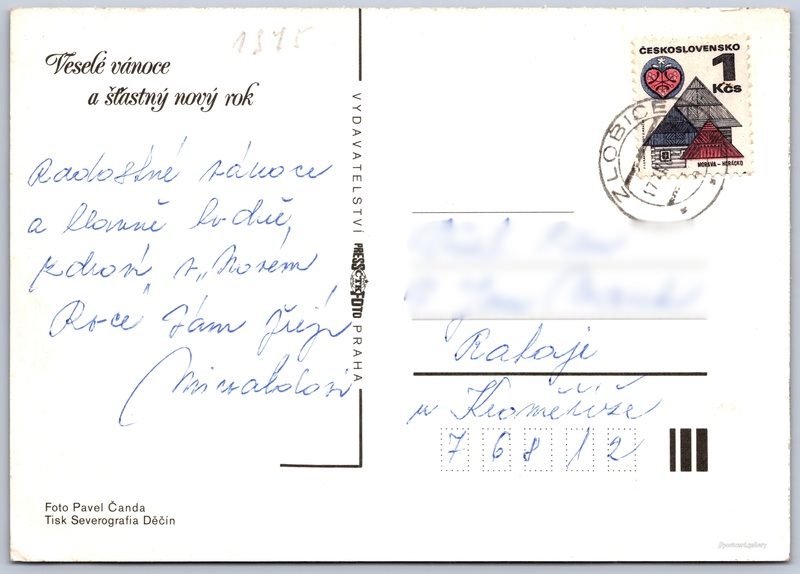 1975
Veselé vánoce
a šťastný nový rok
Radostné vánoce
a hlavně hodně
zdraví v „Novém
Roce" Vám přejí
VYDAVATELSTVÍ PRESSFOTO PRAHA
ČESKOSLOVENSKO
1
Kčs
MORAVA – HORÁCKO
ZLOBICE
Rataje
u Kroměříže
76812
Foto Pavel Čanda
Tisk Severografia Děčín